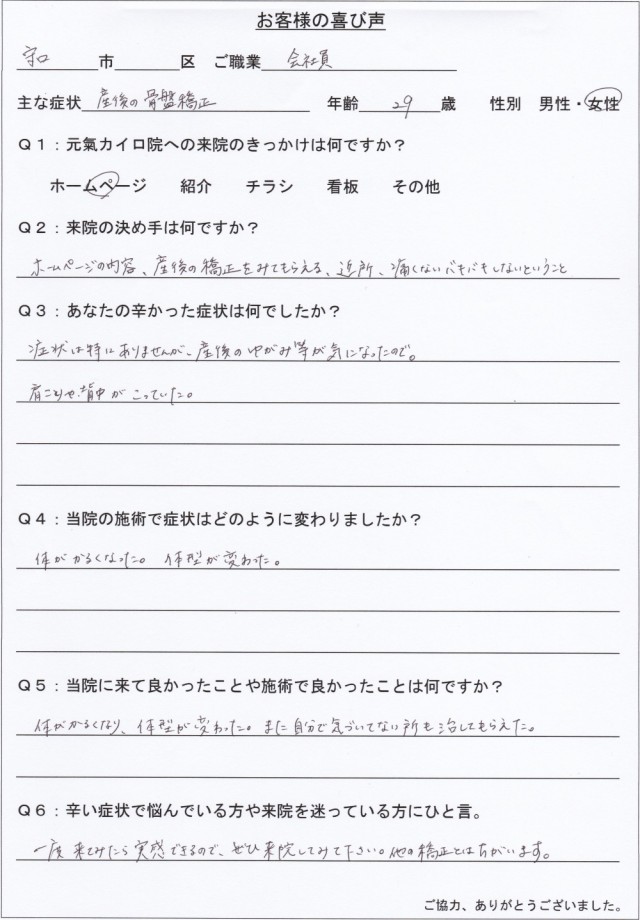 お客様の喜び声
守口市 区 ご職業 会社員
主な症状 産後の骨盤矯正 年齢 29 歳 性別 男性・女性
Q1：元氣カイロ院への来院のきっかけは何ですか？
ホームページ 紹介 チラシ 看板 その他
Q2：来院の決め手は何ですか？
ホームページの内容、産後の矯正をみてもらえる、近所、痛くないバキバキしないということ
Q3：あなたの辛かった症状は何でしたか？
症状は特にありませんが、産後のゆがみ等が気になったので。
肩こりや、背中がこっていた。
Q4：当院の施術で症状はどのように変わりましたか？
体がかるくなった。 体型が変わった。
Q5：当院に来て良かったことや施術で良かったことは何ですか？
体がかるくなり、体型が変わった。また自分で気づいてない所も治してもらえた。
Q6：辛い症状で悩んでいる方や来院を迷っている方にひと言。
一度来てみたら実感できるので、ぜひ来院してみて下さい。他の矯正とはちがいます。
ご協力、ありがとうございました。